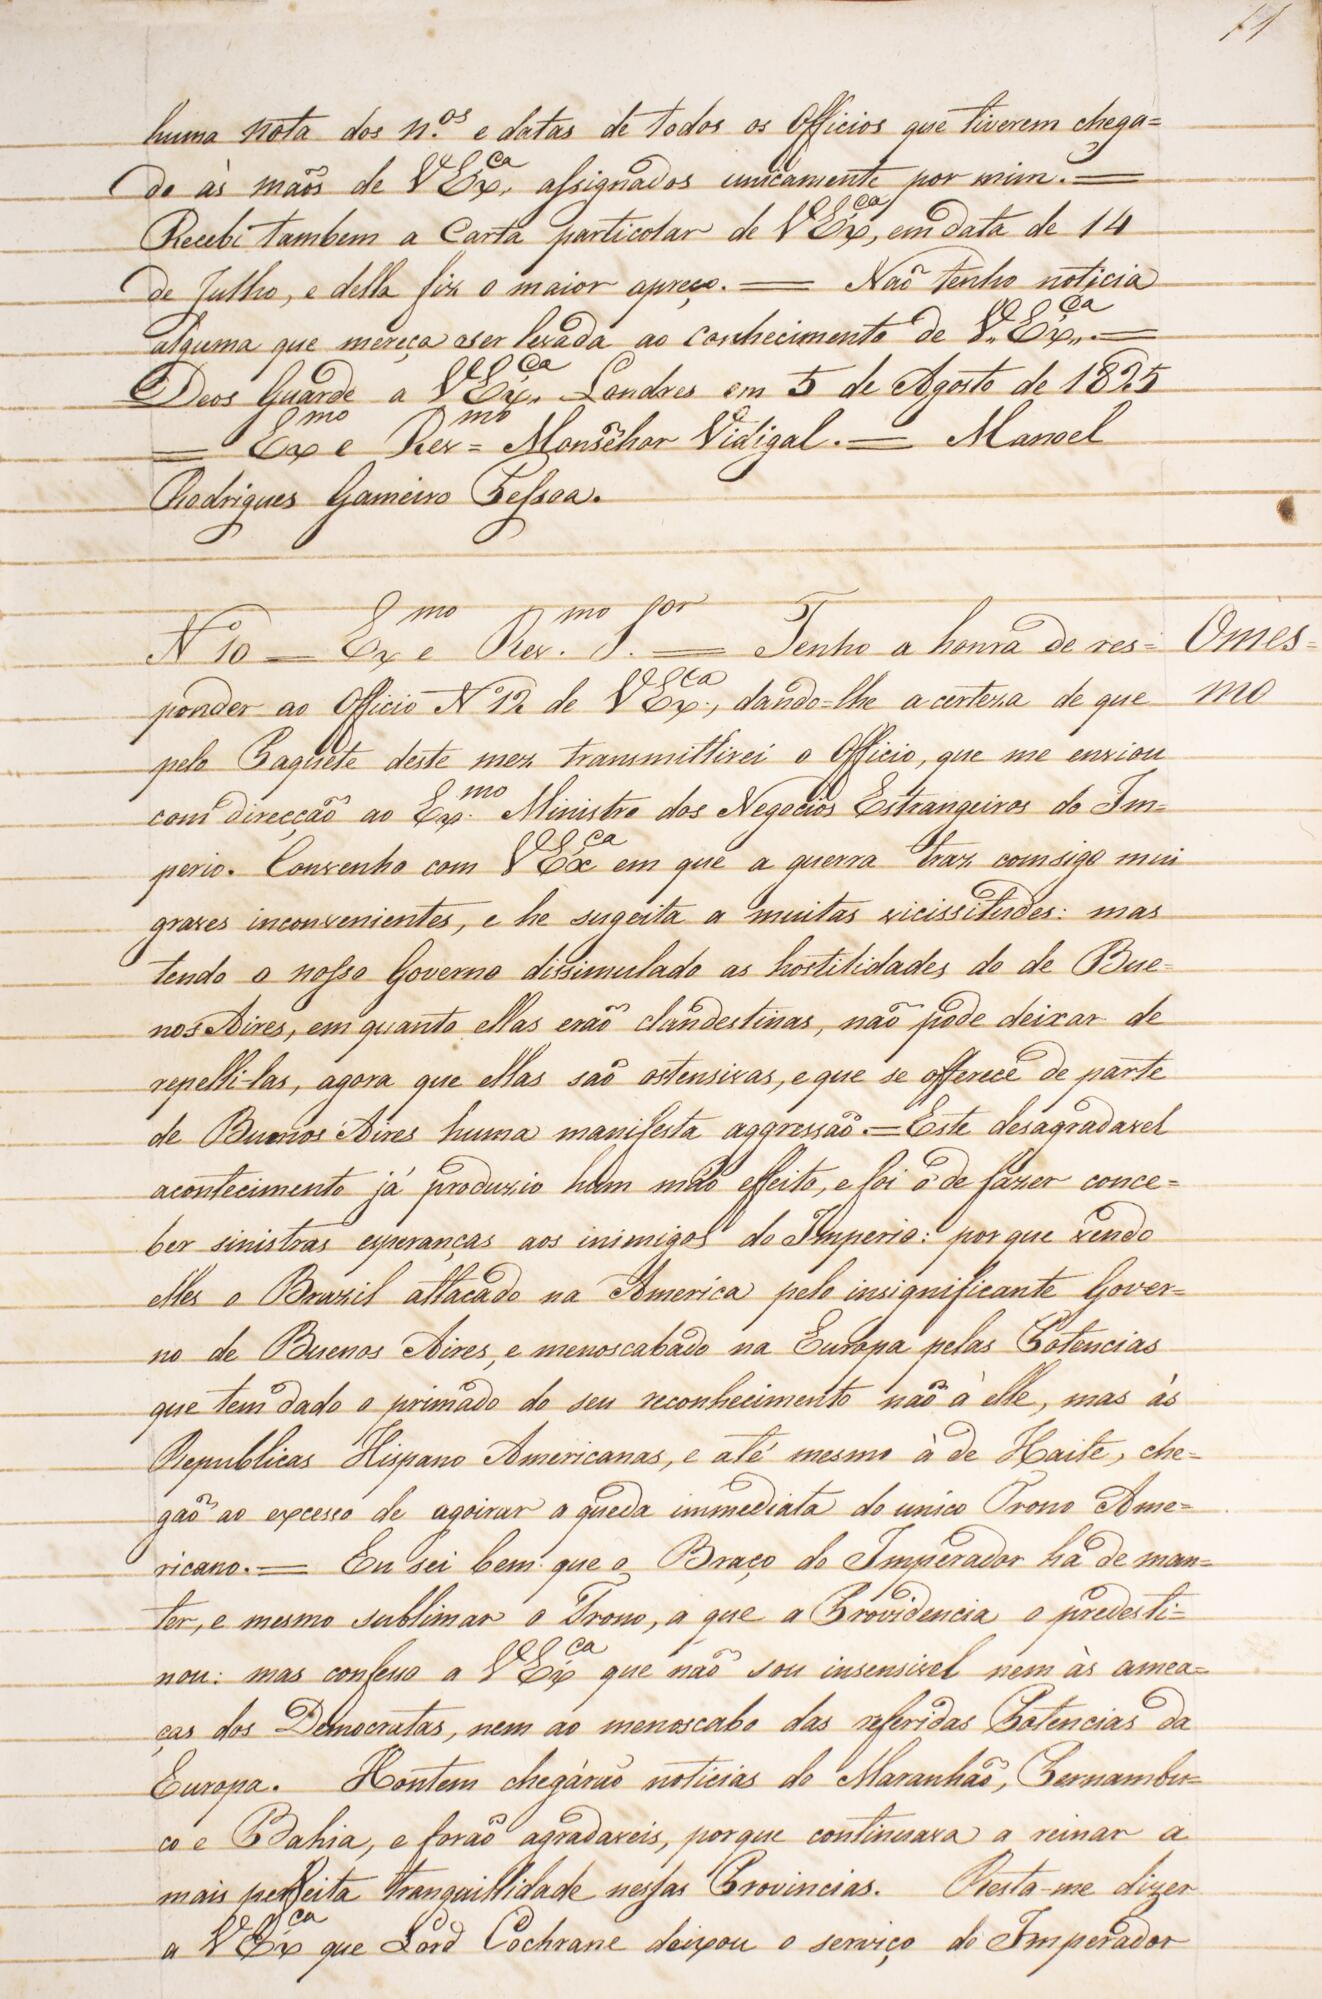 11
huma nota dos n.os e datas de todos os Officios que tiverem chega=
do às maõs de VExca, assignados unicamente por mim. =
Recebi tambem a Carta particolar de VExca, em data de 14
de Julho, e della fiz o maior apreço. = Naõ tenho noticia
alguma que mereça ser levada ao conhecimento de V.Exca. =
Deos Guarde a VExca. Londres em 5 de Agosto de 1825
= Exmo e Revmo = Monsẽhor Vidigal. = Manoel
Rodrigues Gameiro Pessoa.
Nº 10 = Exmo e Rev.mo S.or = Tenho a honra de res=
Omes=
ponder ao Officio Nº 12 de VExca, dando-lhe a certeza de que
mo
pelo Paquete deste mez transmittirei o Officio, que me enviou
com direcçaõ ao Exmo Ministro dos Negocios Estrangeiros do Im=
perio. Convenho com VExca em que a guerra traz comsigo mui
graves inconvenientes, e he sugeita a muitas vicissitudes: mas
tendo o nosso Governo dissimulado as hostilidades do de Bue=
nos Aires, em quanto ellas eraõ clandestinas, naõ pode deixar de
repelli-las, agora que ellas saõ ostensivas, e que se offerece de parte
de Buenos Aires huma manifesta aggressaõ. = Este desagradavel
acontecimento já produzio hum máo effeito, e foi o de fazer conce=
ber sinistras esperanças aos inimigos do Imperio: por que vendo
elles o Brazil attacado na America pelo insignificante Gover=
no de Buenos Aires, e menoscabado na Europa pelas Potencias
que tem dado o primado do seu reconhecimento naõ à elle, mas ás
Republicas Hispano Americanas, e até mesmo à de Haite, che=
gaõ ao excesso de agoirar a queda immediata do unico Trono Ame=
ricano. = Eu sei bem que o Braço do Imperador há de man=
ter, e mesmo sublimar o Trono, a que a Providencia o predesti=
nou: mas confesso a VExca que naõ sou insensivel nem às amea=
ças dos Democratas, nem ao menoscabo das referidas Potencias da
Europa. Hontem chegáraõ noticias do Maranhaõ, Pernambu=
co e Bahia, e foraõ agradaveis, porque continuava a reinar a
mais perfeita tranquillidade nessas Provincias. Resta-me dizer
a VExca que Lord Cochrane deixou o serviço do Imperador